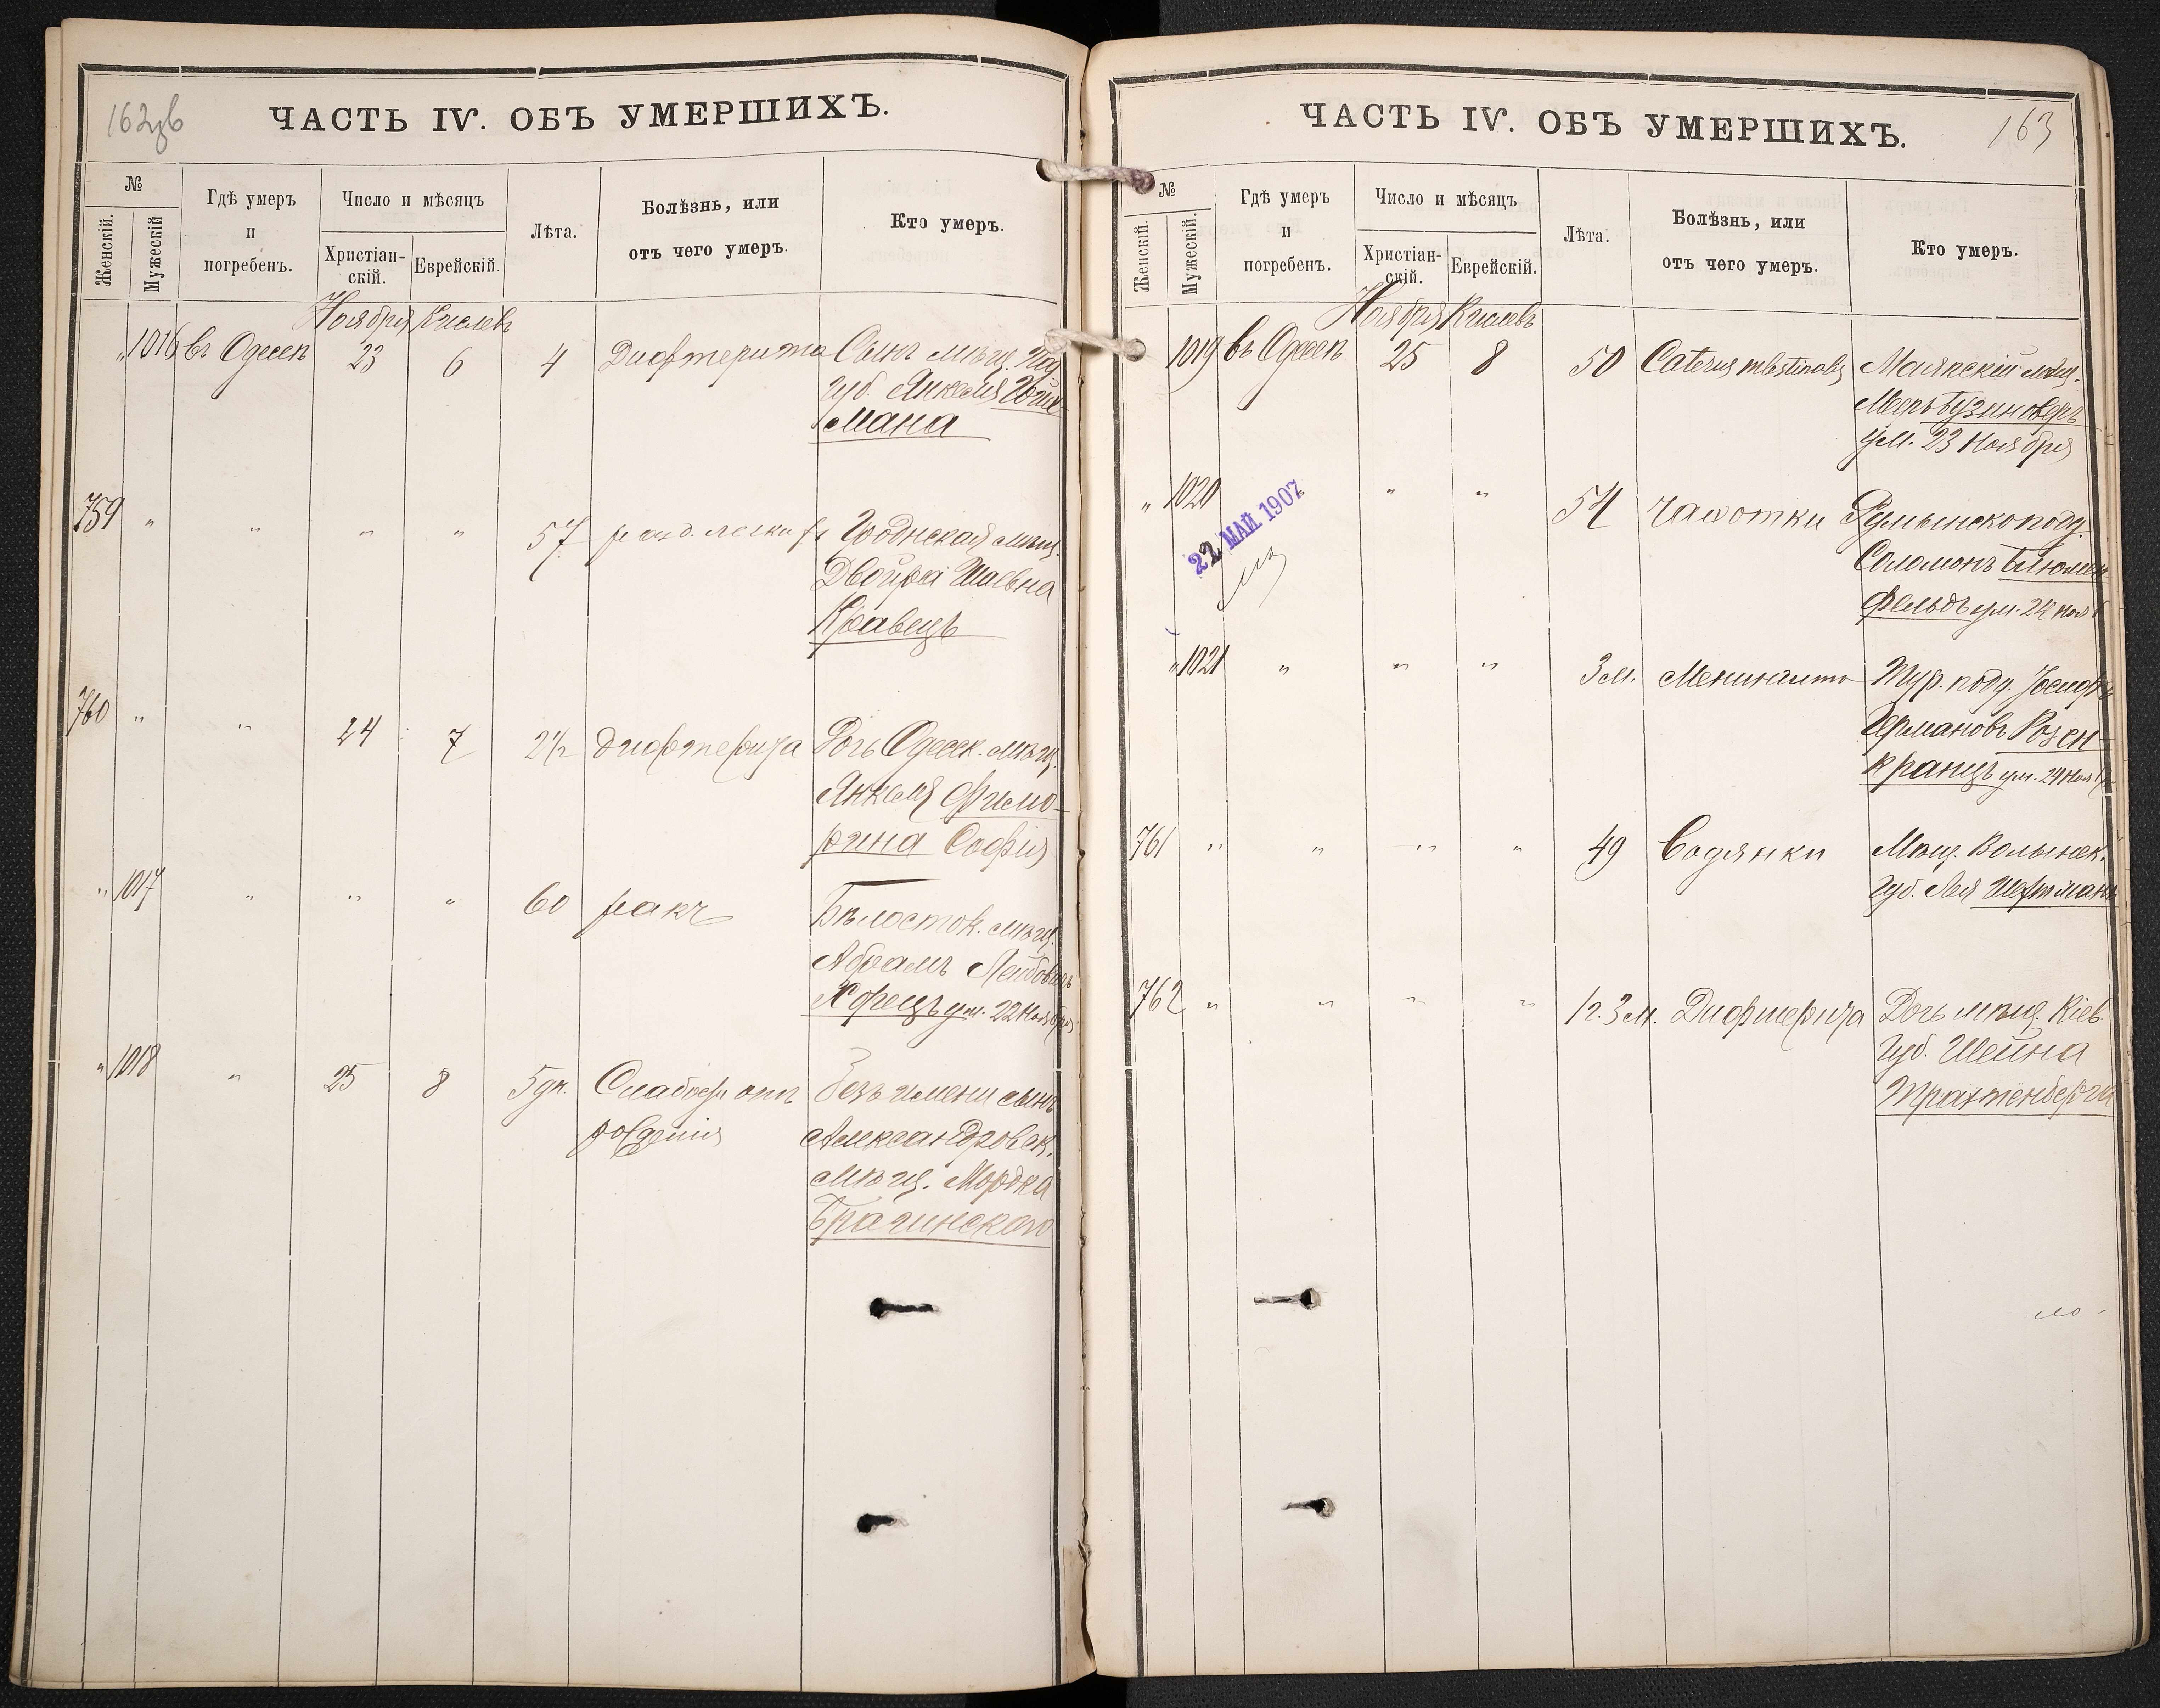 162об
ЧАСТЬ IV. ОБЪ УМЕРШИХЪ.
№
Женскій.
Мужескій
Гдѣ умеръ
и
погребенъ.
Число и мѣсяцъ
Христіан-
скій.
Еврейскій.
Лѣта.
Болѣзнь, или
отъ чего умеръ.
Кто умеръ.
Ноября Кислевъ
" 1016 въ Одессѣ 23 6 4 Дифтерита Сынъ мѣщ. Под.
губ. Янкеля
мана
759 " " " " 57 Гродненская мѣщ.
Двойра Шаевна
Кравецъ
760 " " 24 7 2½ Дифтерита Дочь Одесск. мѣщ.
Янкеля Филю-
рина Софія
" 1017 " " " 60 ракъ Бѣлосток. мѣщ.
Абрамъ Лейбовъ
Хорецъ ум. 22 Ноября
" 1018 " 25 8 5 дн. Слабости отъ
рожденія
Безъ имени сынъ
Александровск.
мѣщ. Мордка
Брагинскаго
ЧАСТЬ IV. ОБЪ УМЕРШИХЪ.
163
№
Женскій.
Мужескій.
Гдѣ умеръ
и
погребенъ.
Число и мѣсяцъ
Христіан-
скій.
Еврейскій.
Лѣта.
Болѣзнь, или
отъ чего умеръ.
Кто умеръ.
Ноября Кислевъ
1019 въ Одессѣ 25 8 50 Маякскій мѣщ.
ум. 23 Ноября
" 1020 " " " 54 Чахотки Румынскопод.
Соломонъ Блюмен
фельдъ ум. 24 Нояб
22 МАЙ 1907
" 1021 " " " 3 м. Менингита Тур. подд. Іосифъ
Германовъ Розен-
кранцъ ум. 24 Нояб
761 " " " " 49 Водянки Мѣщ. Волынск.
губ. Лея
762 " " " " 1 г. 3 м. Дифтерита Дочь мѣщ. Кіев.
губ. Шейна
Трахтенберга